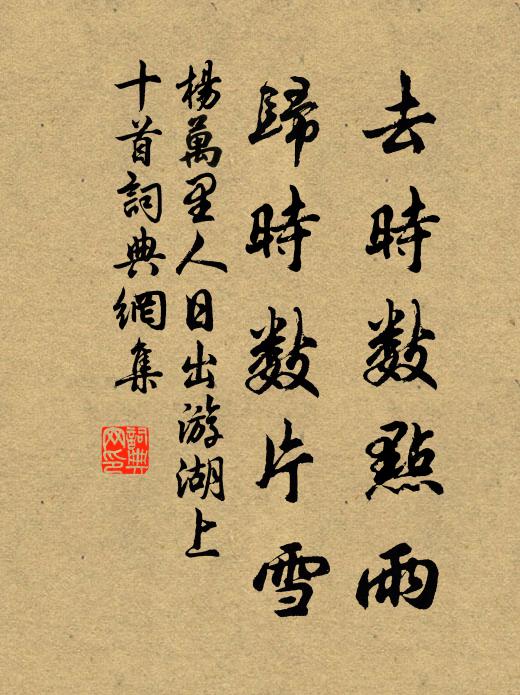 去時數點雨
歸時數片雪
楊萬里人日出游湖上
十首詞典網集
詞典網印